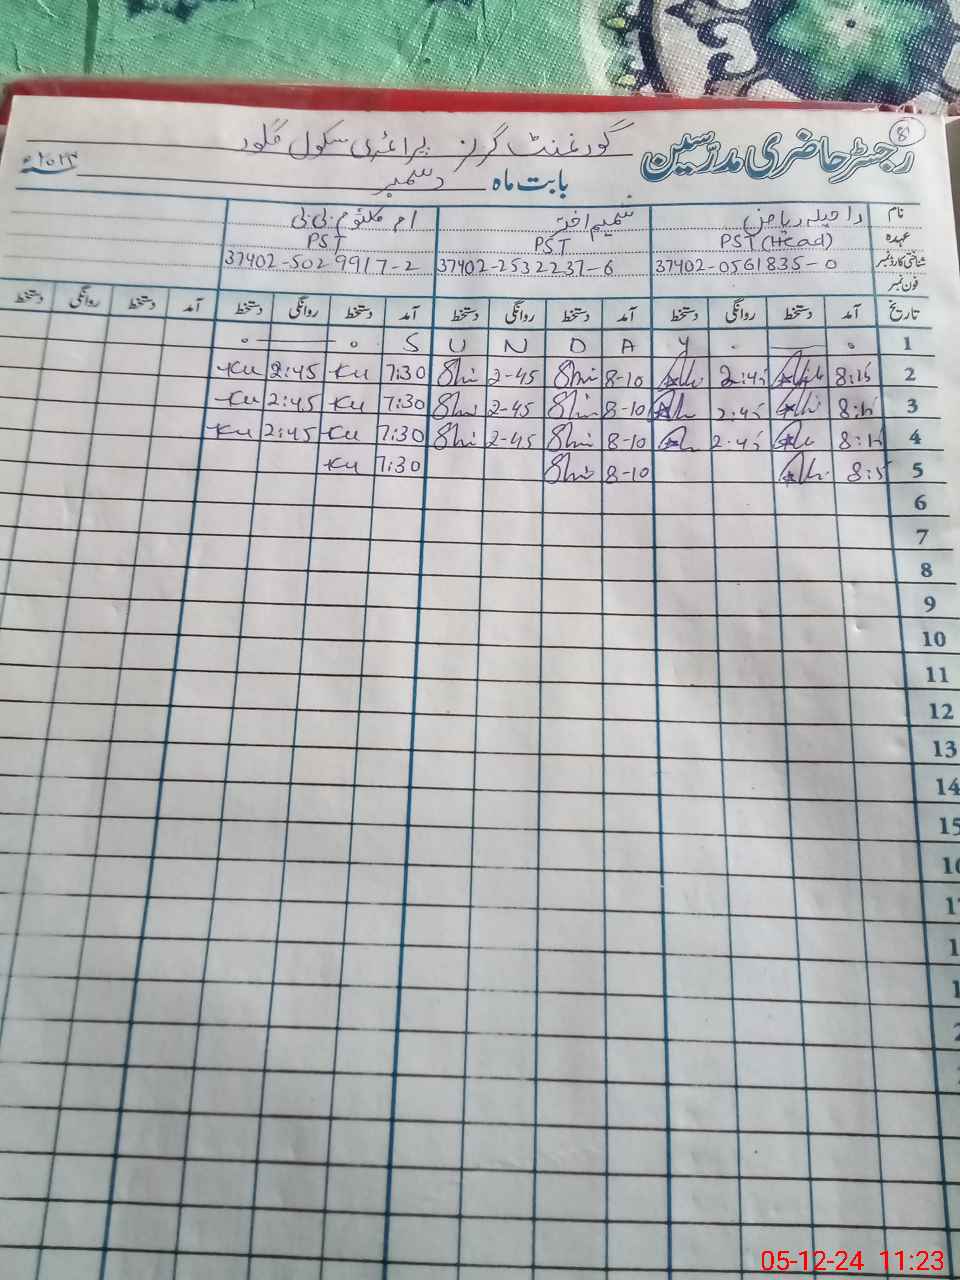 8
رجسٹر حاضری مدرسین گورنمنٹ گرلز پرائمری سکول
بابت ماہ دسمبر ۲۰۲۴ء
نام راحیلہ ریاض شمیم اختر ام کلثوم بی بی
عہدہ PST (Head) PST PST
شناختی کارڈ نمبر 37402-0561835-0 37402-2532237-6 37402-5029917-2
فون نمبر
تاریخ آمد دستخط روانگی دستخط آمد دستخط روانگی دستخط آمد دستخط روانگی دستخط آمد دستخط روانگی دستخط
1 S U N D A Y
2 8:15 2:45 8-10 Shi 2-45 Shi 7:30 Ku 2:45 Ku
3 8:15 2:45 8-10 Shi 2-45 Shi 7:30 Ku 2:45 Ku
4 8:15 2:45 8-10 Shi 2-45 Shi 7:30 Ku 2:45 Ku
5 8-10 Shi 7:30 Ku
6
7
8
9
10
11
12
13
14
15
05-12-24 11:23